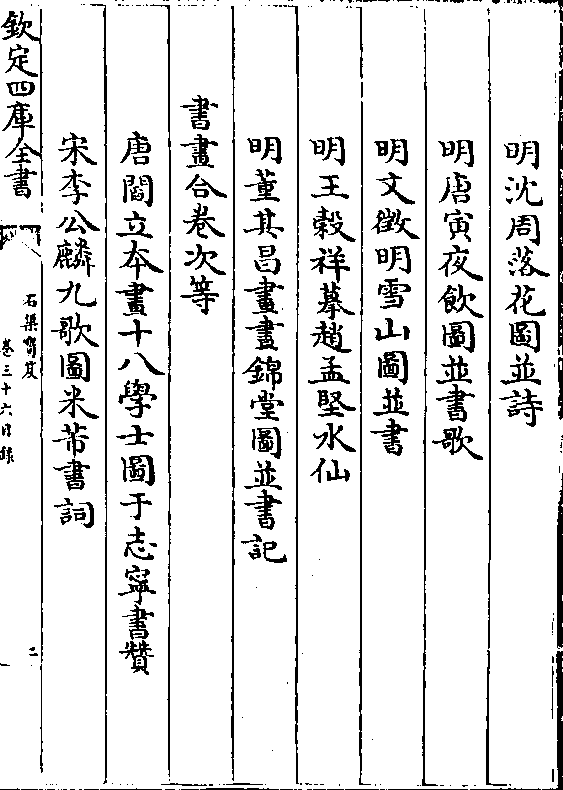 明沈周落花圖並詩
明唐寅夜飲圖並書歌
明文徵明雪山圖並書
明王穀祥摹趙孟堅水仙
明董其昌畫晝錦堂圖並書記
書畫合卷次等
唐閻立本畫十八學士圖于志寧書贊
宋李公麟九歌圖米芾書詞
欽定四庫全書
石渠寶笈
卷三十六目錄
二